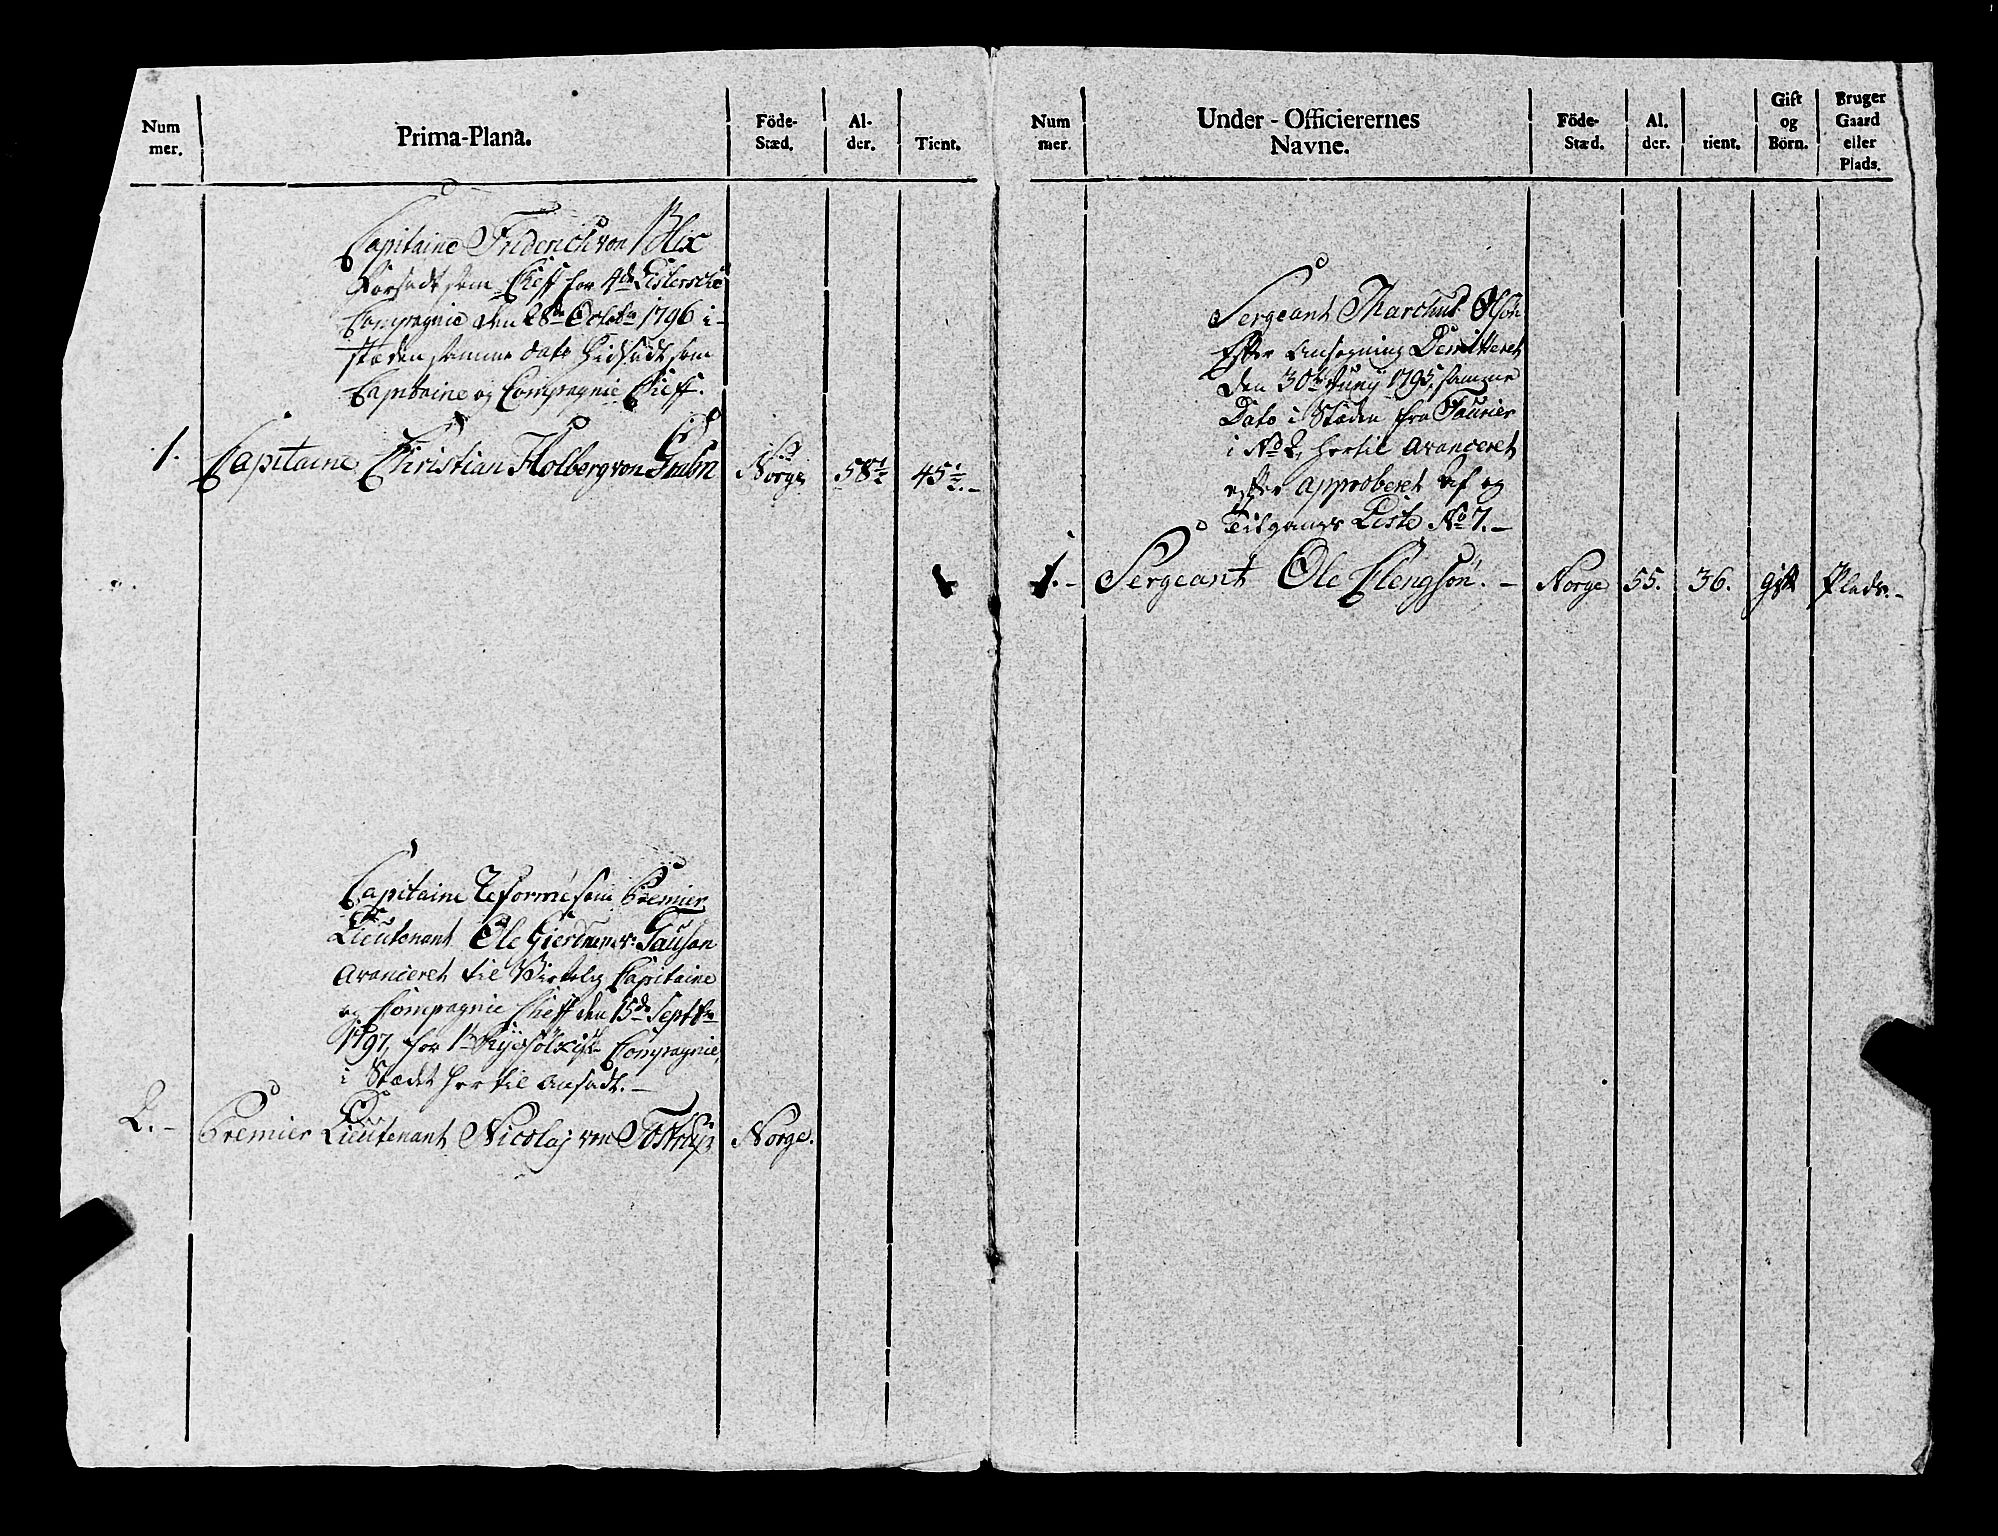 Num
mer.
Prima-Plana.
Föde-
Stæd.
Al-
der.
Tient.
Capitaine Friderich von Blix
Forsadt som Cheff for 4de Listerske
Compagnie den 28de Octobr 1796 i-
stæden samme dato hidsadt som
Capitaine og Compagnie Cheff.
1. Capitaine Christian Holberg von Norge 58½ 45½.-
Capitaine Reformé som Premier
Lieutenant Ole Gierdrum v: Tausan
Avanceret til Virkelig Capitaine
og Compagnie Cheff den 15de Septbr
1797, for 1te Compagnie,
i Stædet her til Ansadt.-
2.- Premier Lieutenant Nicolaj von Tostrup Norge.
Num
mer.
Under-Officierernes
Navne.
Föde-
Stæd.
Al.
der.
tient.
Gift
og
Börn.
Bruger
Gaard
eller
Plads.
Sergeant Marchus Olsön
Efter Ansögning Demitteret
den 30te Juny 1795, samme
Dato i Stæden fra Fourier
i No 2, hertil avanceret
efter approberet Af og
Tilgangs Liste No 7.-
1.- Sergeant Ole Elengsön.- Norge 55. 36. gift Plads.-